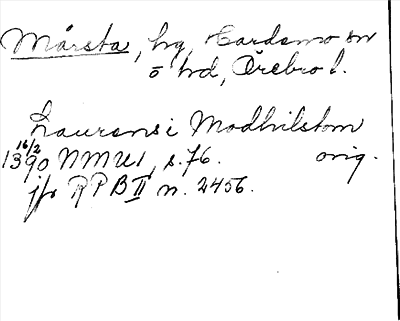 Mårsta, hg, Gårdsmo sn
ö hd, Örebro l.
Laurensi Modhilstom
16/2
1390 NMU1, s. 76. orig.
jfr RPB II n. 2456.